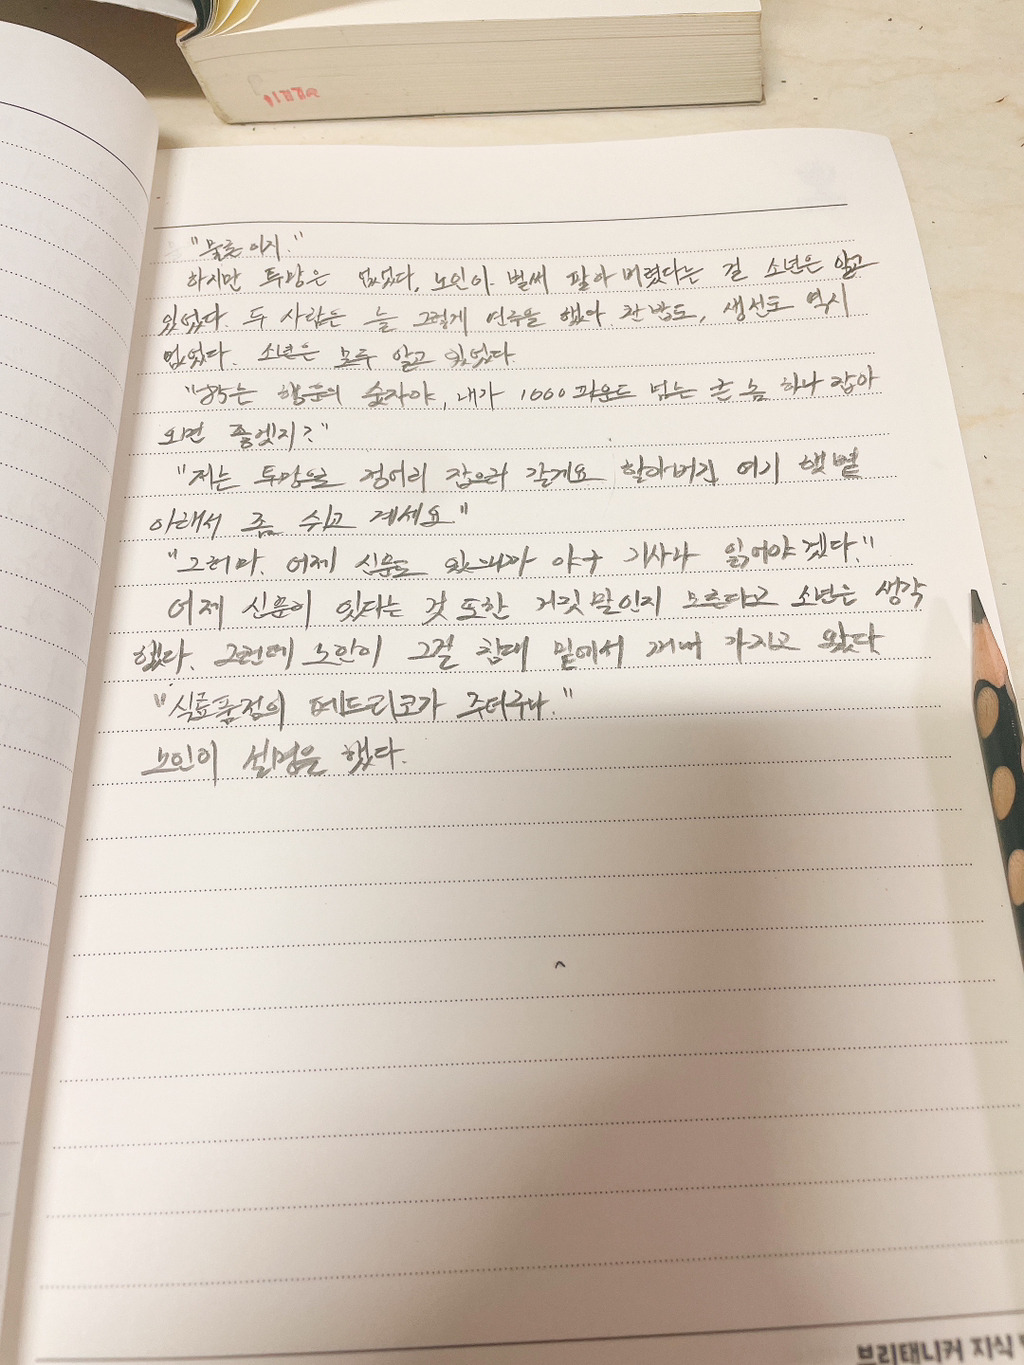 "물론이지."
하지만 투망은 없었다. 노인이 벌써 팔아 버렸다는 걸 소년은 알고
있었다. 두 사람은 늘 그렇게 연극을 했다. 찬밥도, 생선도 역시
없었다. 소년은 모두 알고 있었다.
"85는 행운의 숫자야, 내가 1000파운드 넘는 큰 놈 하나 잡아
오면 좋겠지?"
"저는 투망으로 정어리 잡으러 갈게요 할아버진 여기 햇볕
아래서 좀 쉬고 계세요"
"그러마. 어제 신문도 있으니까 야구 기사나 읽어야겠다."
어제 신문이 있다는 것 또한 거짓말인지 모른다고 소년은 생각
했다. 그런데 노인이 그걸 침대 밑에서 꺼내 가지고 왔다
"식료품점의 페드리코가 주더구나."
노인이 설명을 했다.
브리태니커 지식